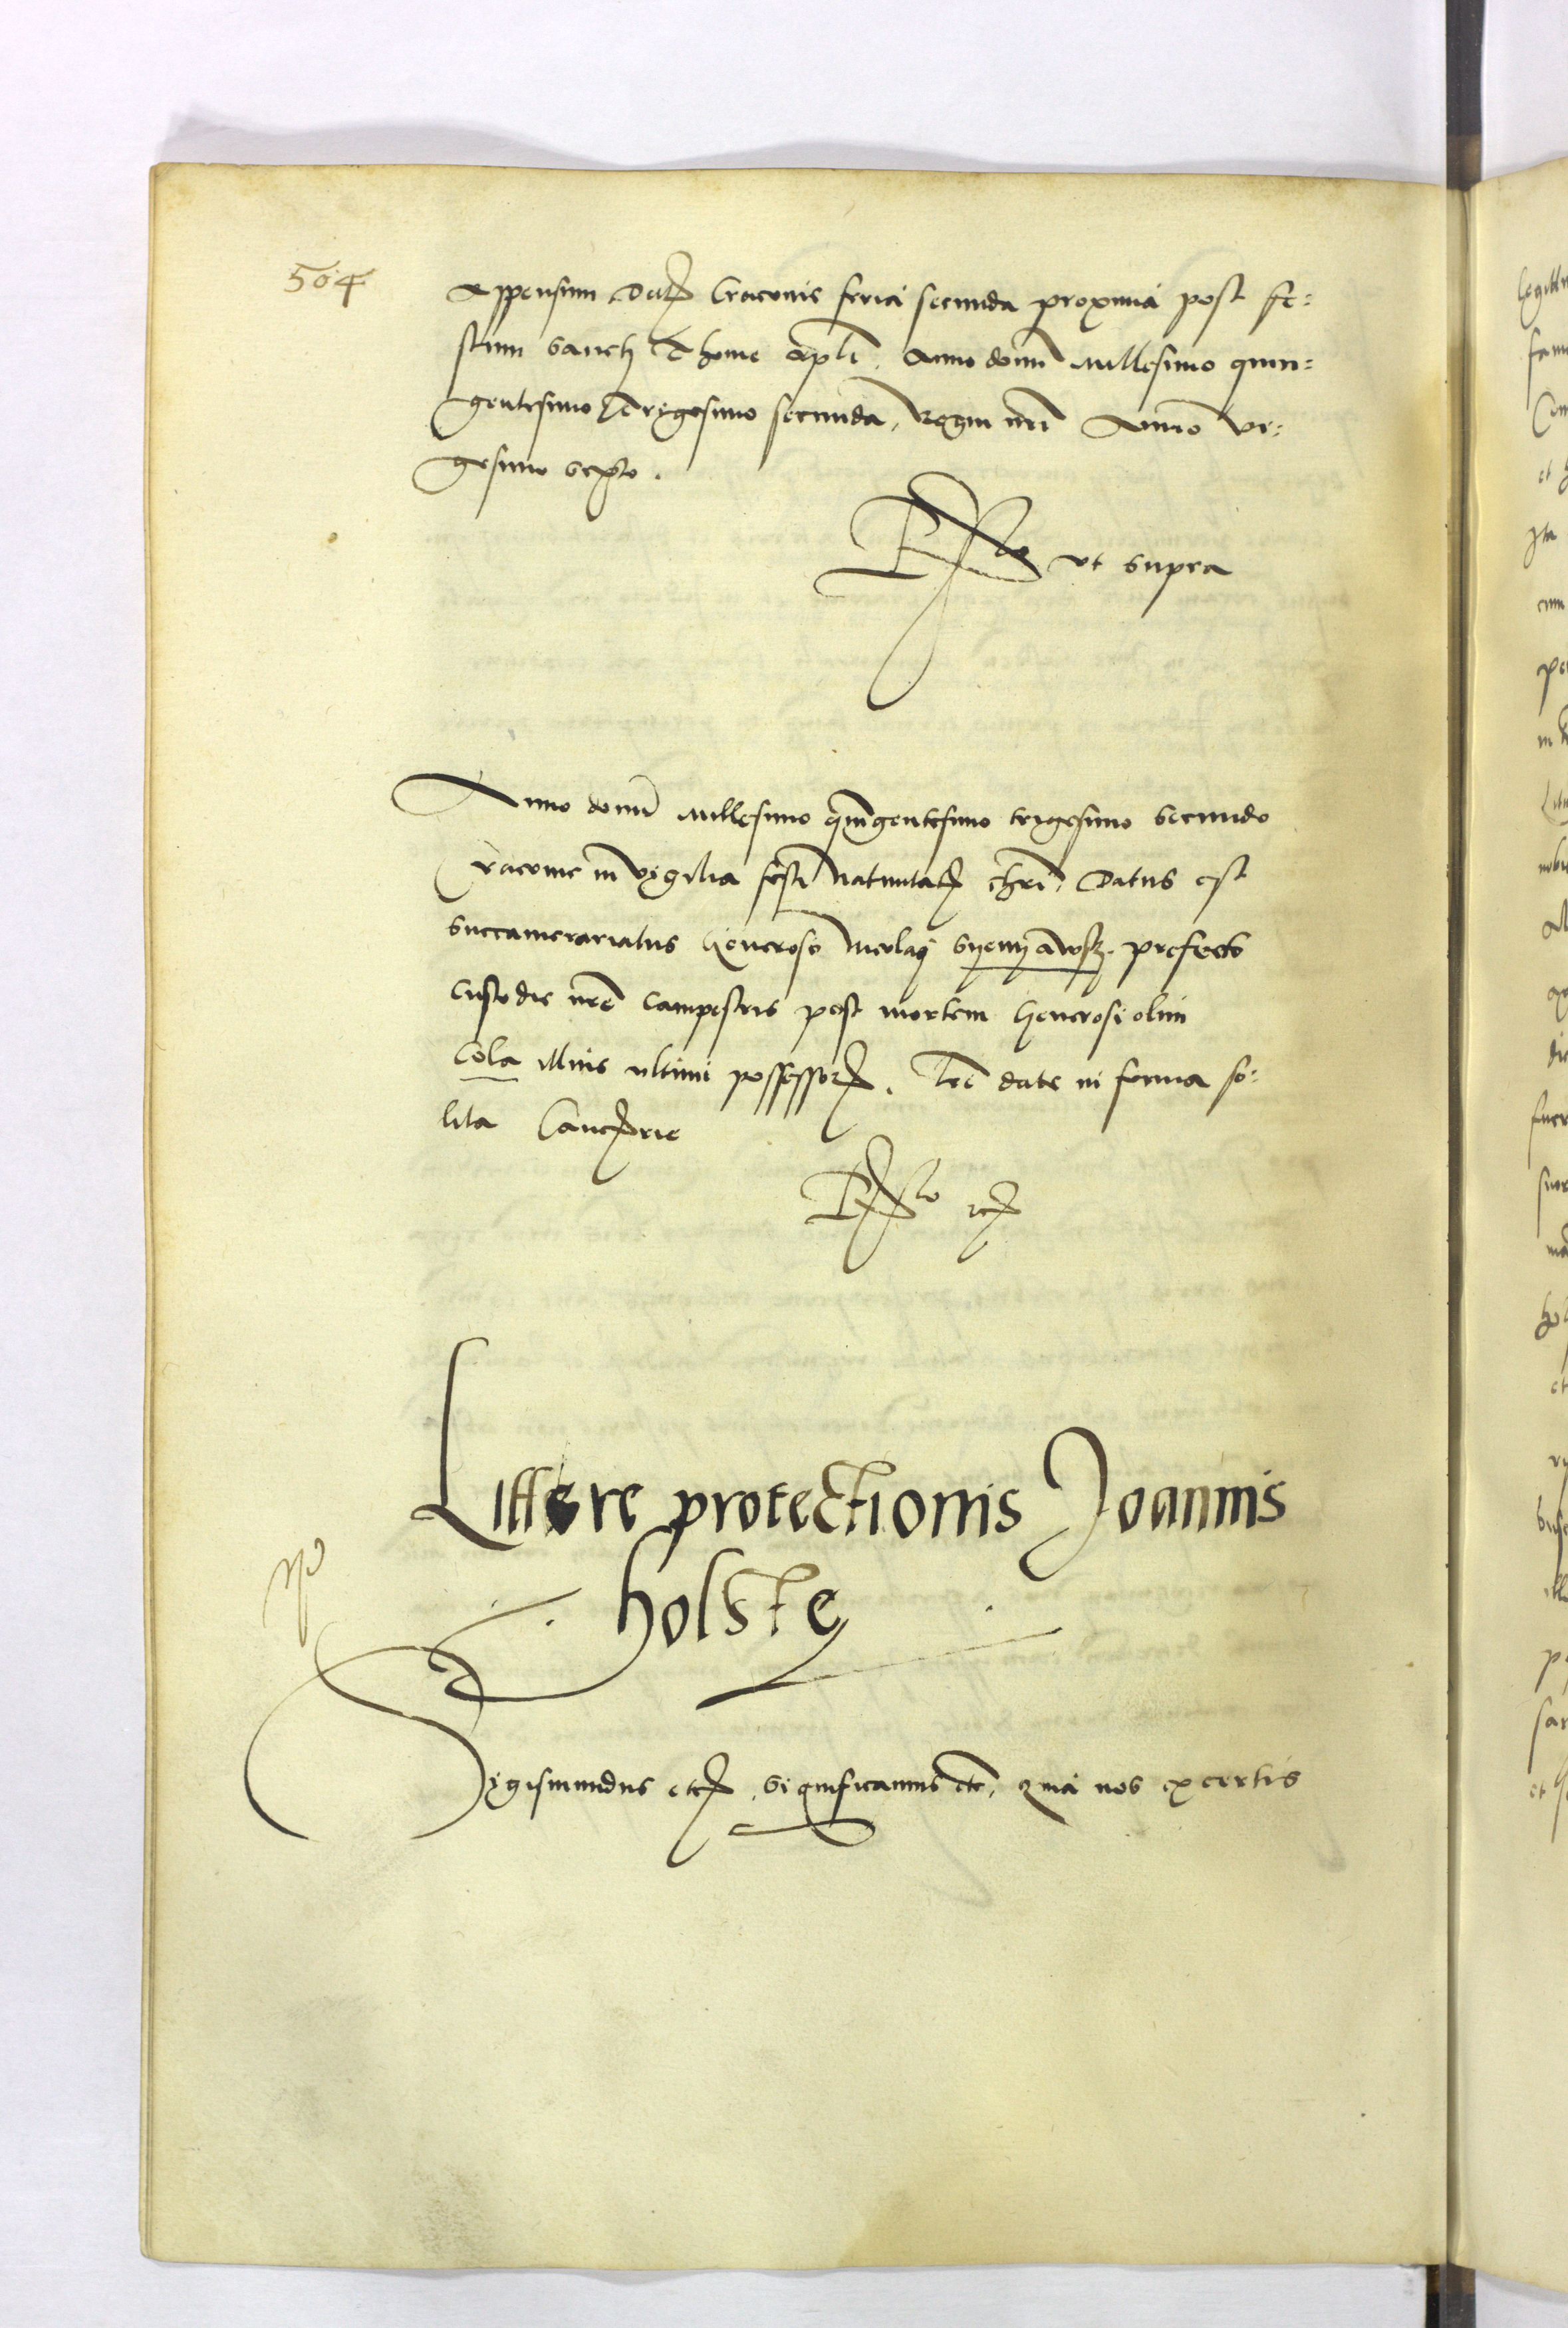 504
Appensum Dat Cracovie feria secunda proxima post fe:
stum Sancti Thome apli. Anno domi Millesimo quin:
gentesimo Trigesimo secundo, Regni nri Anno vi:
gesimo sexto.
ut supra
Anno domi Millesimo quingentesimo trigesimo secundo
Cracovie in vigilia festi nativitatis chri, Datus est
succamerariatus Generoso Nicolao Syenyawsk. prefecto
custodie nre campestris post mortem Generosi olim
Cola illius ultimi possessoris. lre date in forma so:
lita Cancrie
etc
Littere protectionis Joannis
holste
Sigismundus etc. significamus etc, quia nos ex certis